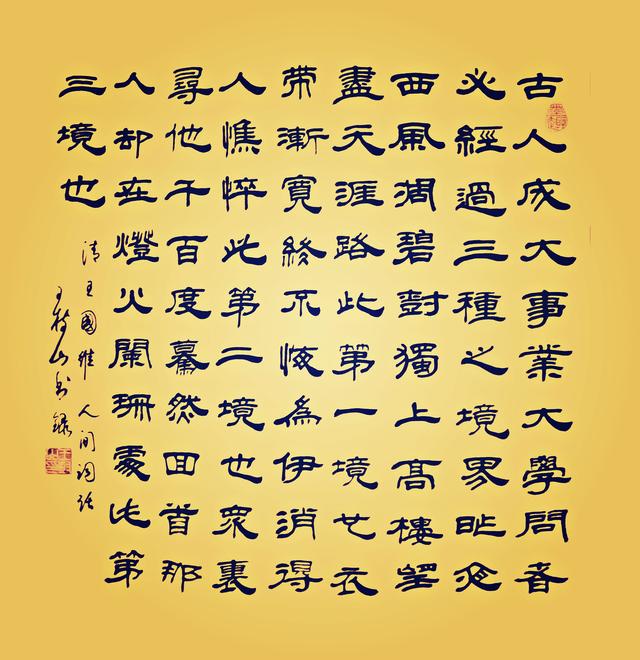 古人成大事業大學問者
必經過三種之境界昨夜
西風凋碧樹獨上高樓望
盡天涯路此第一境也衣
帶漸寬終不悔為伊消得
人憔悴此第二境也衆裏
尋他千百度驀然回首那
人却在燈火闌珊處此第
三境也
清王國維人間词话
王山书録